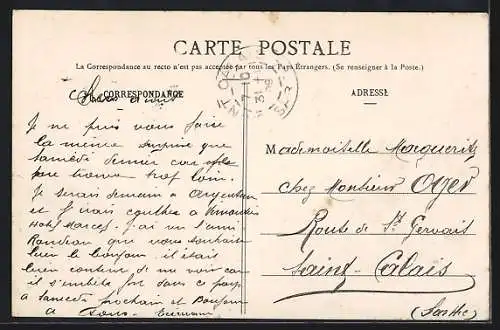 CARTE POSTALE
La Correspondance au recto n'est pas acceptée par tous les Pays Étrangers. (Se renseigner à la Poste.)
CORRESPONDANCE
ADRESSE
Je ne puis vous faire
la même surprise que
samedi dernier car
me trouve trop loin.
Je serais demain à Argentan
et J'irai
Hotel Marcel. J'ai un ami
que vous souhaite
bien le bonjour. il était
bien content de me voir car
il s'embête fort dans ce pays
à samedi prochain et Bonjour
à tous.
Mademoiselle Marguerite
chez Monsieur Oger
Route de St Gervais
Saint-Calais
(Sarthe)